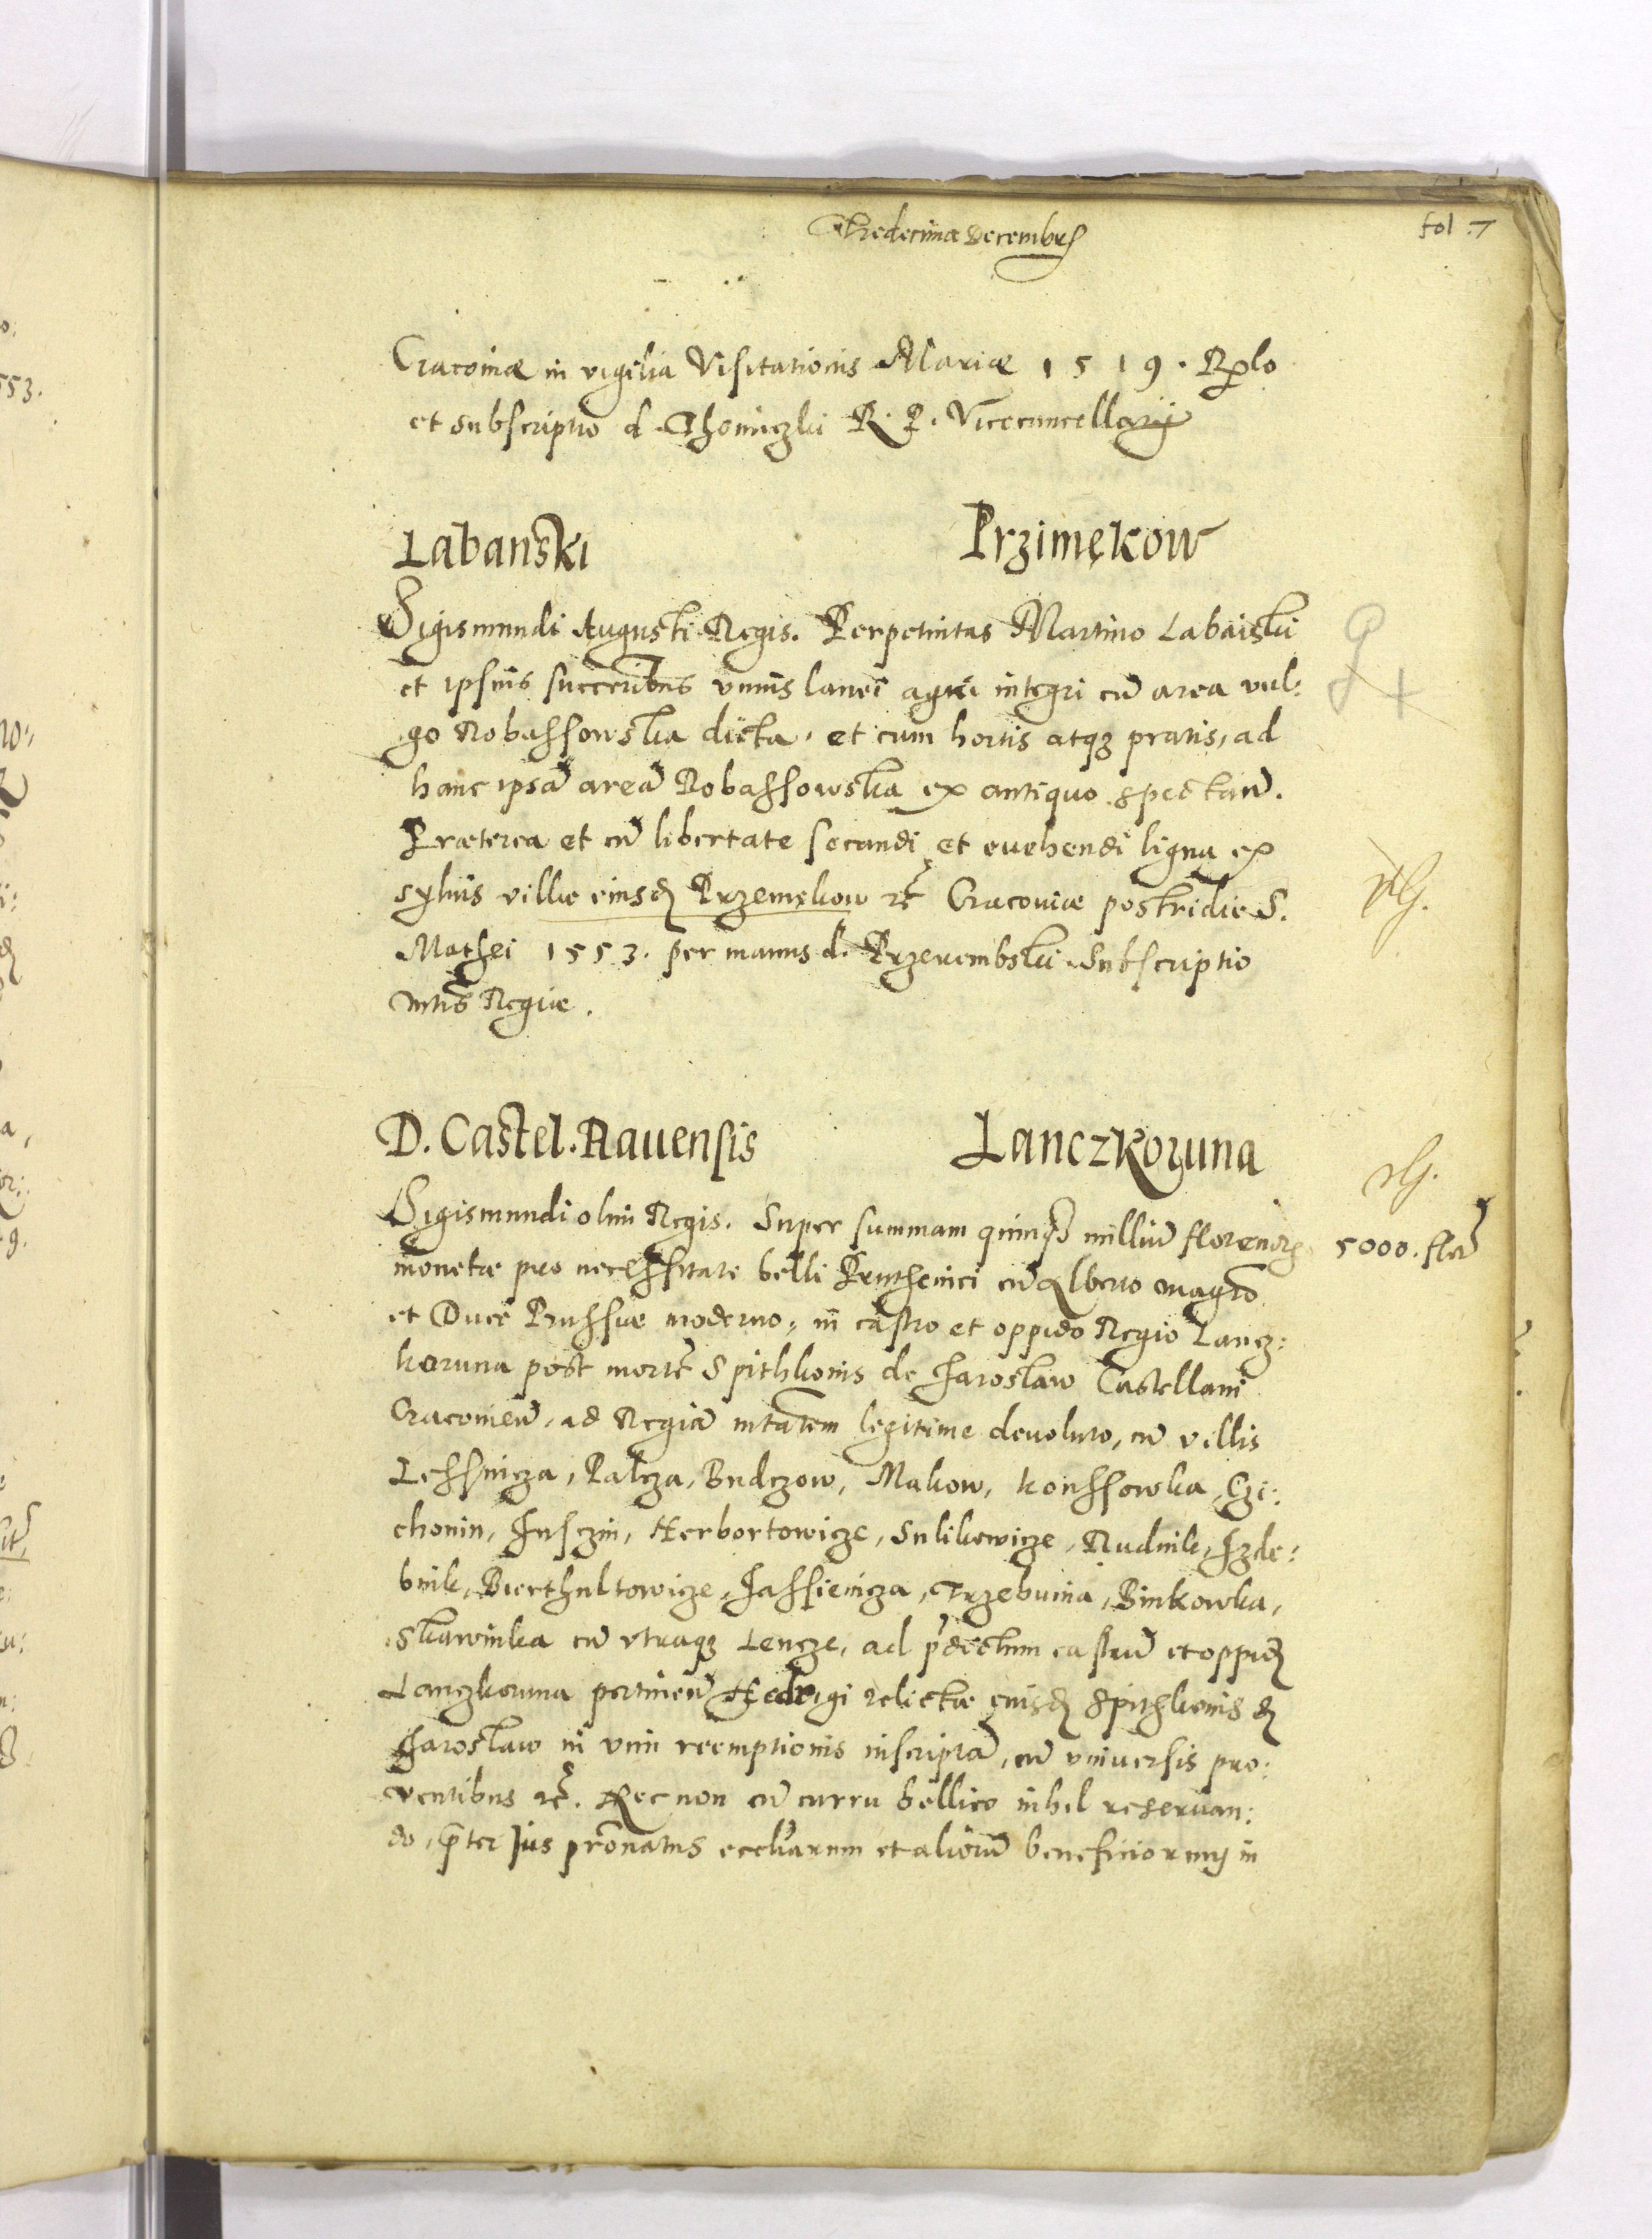 Thredecima Decembris
fol: 7
Cracoviæ in vigilia Visitationis Mariæ 1519. Rplo
et subscriptio d. Thomiczki R. P. Vicecancellarij
Labanski Przimękow
Sigismundi Augusti Regis. Perpetuitas Martino Labaiski
et ipsius successoribus unius lanei agri integri cū area vul:
go Robassowska dicta, et cum hortis atq3 pratis, ad
hanc ipsā areā Robassowska ex antiquo spectan̄.
Præterea et cū libertate secandi et evehendi ligna ex
sylvis villæ eiusd Przemękow etc̄ Cracoviæ postridie S.
Mathei 1553. per manus d. Przerembski. Subscriptio
Mtis Regiæ.
D. Castel. Ravensis Lanczkoruna
Sigismundi olim Regis. Super summam quinq3 milliū florenor
5000. flor
monetæ pro necessitate belli Pruthenici cū Alberto magrō
et Duce Prussiæ moderno, in castro et oppido Regio Lancz:
koruna post mortē Spithkonis de Jaroslaw Castellani
Cracovien̄, ad Regiā mtatem legitime devoluto, cū villis
Lessnicza, Palcza, Budczow, Makow, Konssowka, Czi:
chonin, Jusczin, Herbortowicze, Sulikowicze, Rudnik, Izde:
bnik, Bierthultowicze, Jassienicza, Trzebunia, Binkowka,
Skawinka cū utraq3 Lencze, ad pdictum castrū et oppid
Lanczkoruna pertinen̄ Hedvigi relictæ eiusd Spithkonis d
Jaroslaw in vim reemptionis inscripta, cū universis pro:
ventibus etc̄. Necnon cū curru bellico nihil reservan:
do, p̄ter Jus pronatus eccliarum et aliorū beneficiorum in